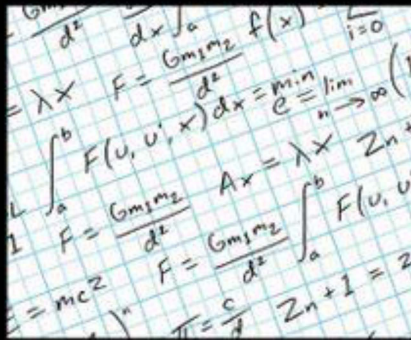 Gm₁m₂/d² d/dx ∫ₐ f(x) Σ i=0
= λx F = Gm₁m₂/d²
∫ₐᵇ F(u, u', x) dx = min e = lim n→∞ (
Ax = λx Zn +
F = Gm₁m₂/d² F = Gm₁m₂/d² ∫ₐᵇ F(u, u'
= mc2 )ⁿ π = c/d Zn+1 = z